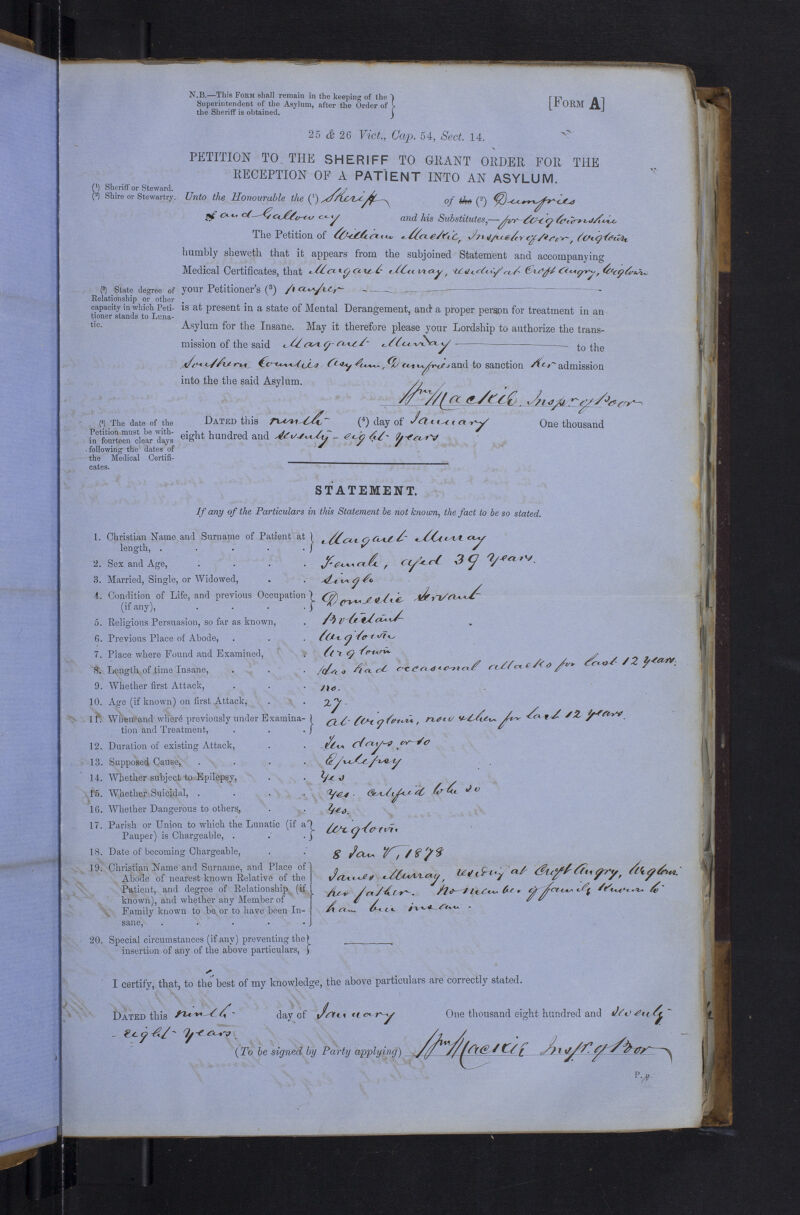 N.B.—This Form shall remain in the keeping of the
Superintendent of the Asylum, after the Order of
the Sheriff is obtained.
[Form A]
25 & 26 Vict., Cap. 54, Sect. 14.
PETITION TO THE SHERIFF TO GRANT ORDER FOR THE
RECEPTION OF A PATIENT INTO AN ASYLUM.
(¹) Sheriff or Steward.
(²) Shire or Stewartry.
Unto the Honourable the (¹) Sheriff of the (²) Dumfries
and Galloway and his Substitutes,— for Wigtownshire
The Petition of William Mackie, Inspector of Poor, Wigtown
humbly sheweth that it appears from the subjoined Statement and accompanying
Medical Certificates, that Margaret Murray, residing at Croft Angry, Wigtown
(³) State degree of
Relationship or other
capacity in which Peti-
tioner stands to Luna-
tic.
your Petitioner's (³) pauper
is at present in a state of Mental Derangement, and a proper person for treatment in an
Asylum for the Insane. May it therefore please your Lordship to authorize the trans-
mission of the said Margaret Murray to the
Southern Counties Asylum, Dumfries and to sanction her admission
into the the said Asylum.
Wm Mackie. Inspr of Poor
(⁴) The date of the
Petition must be with-
in fourteen clear days
following the dates of
the Medical Certifi-
cates.
Dated this ninth (⁴) day of January One thousand
eight hundred and seventy-eight years
STATEMENT.
If any of the Particulars in this Statement be not known, the fact to be so stated.
1. Christian Name and Surname of Patient at length, . Margaret Murray
2. Sex and Age, . Female, aged 39 years.
3. Married, Single, or Widowed, . Single
4. Condition of Life, and previous Occupation (if any), . Domestic Servant
5. Religious Persuasion, so far as known, . Protestant
6. Previous Place of Abode, . Wigtown
7. Place where Found and Examined, . Wigtown
8. Length of time Insane, . Has had occasional attacks for last 12 years.
9. Whether first Attack, . no.
10. Age (if known) on first Attack, . 27.
11. When and where previously under Examina- tion and Treatment, . at Wigtown, now & then for last 12 years.
12. Duration of existing Attack, . Ten days or so
13. Supposed Cause, . Epilepsy
14. Whether subject to Epilepsy, . Yes
15. Whether Suicidal, . Yes. certified to be so
16. Whether Dangerous to others, . Yes.
17. Parish or Union to which the Lunatic (if a Pauper) is Chargeable, . Wigtown
18. Date of becoming Chargeable, . 8 Jany, 1878
19. Christian Name and Surname, and Place of
Abode of nearest known Relative of the
Patient, and degree of Relationship (if
known), and whether any Member of
Family known to be or to have been In-
sane, .
James Murray, residing at Croft Angry, Wigtown
her father. No member of family known to
have been insane.
20. Special circumstances (if any) preventing the
insertion of any of the above particulars,
I certify, that, to the best of my knowledge, the above particulars are correctly stated.
Dated this ninth day of January One thousand eight hundred and seventy
eight years
(To be signed by Party applying) Wm Mackie Inspr. of Poor